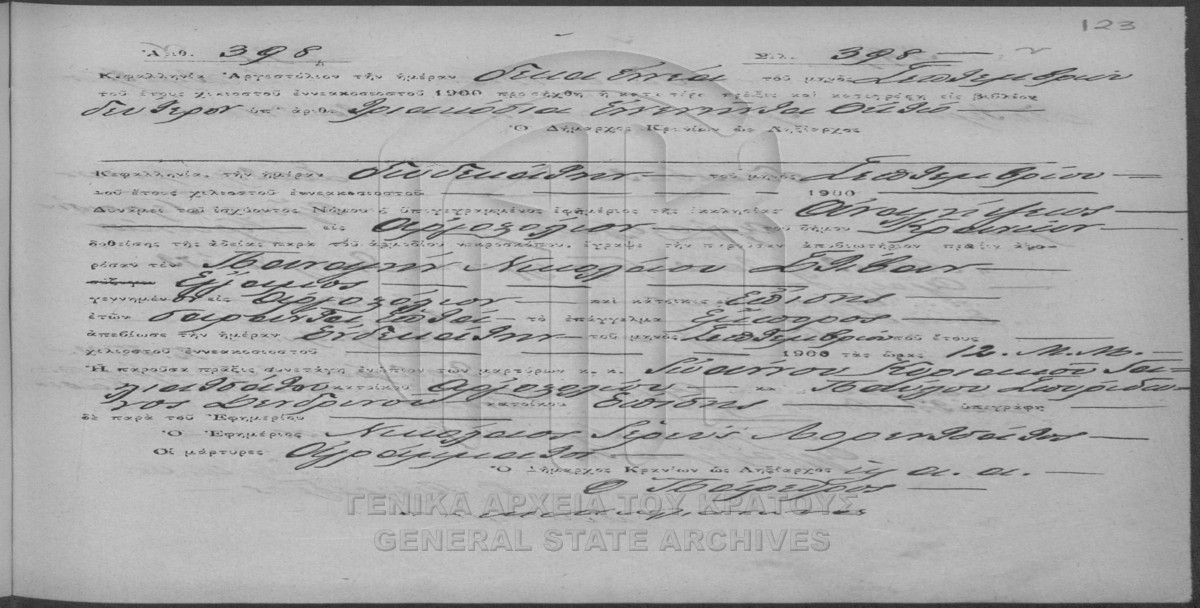 123
Ἀριθ. 398 Σελ. 398
Κεφαλληνία Ἀργοστόλιον τὴν ἡμέραν δεκάτην ἐννέα τοῦ μηνὸς Σεπτεμβρίου
τοῦ ἔτους χιλιοστοῦ ἐννεακοσιοστοῦ 1900 προσήχθη ἡ κατωτέρω πρᾶξις καὶ κατεχωρίσθη εἰς βιβλίον
δεύτερον ὑπ' ἀριθ. τριακόσια ἐνενήντα ὀκτὼ
Ὁ Δήμαρχος Κρανίων ὡς Ληξίαρχος
Κεφαλληνία, τὴν ἡμέραν δωδεκάτην τοῦ μηνὸς Σεπτεμβρίου
τοῦ ἔτους χιλιοστοῦ ἐννεακοσιοστοῦ 1900
Δυνάμει τοῦ ἰσχύοντος Νόμου ὁ ὑπογεγραμμένος ἐφημέριος τῆς ἐκκλησίας Ἀναλήψεως
εἰς Ἀργοστόλιον τοῦ δήμου Κρανίων
δοθείσης τῆς ἀδείας παρὰ τοῦ ἁρμοδίου νεκροσκόπου, ἔγραψε τὴν παροῦσαν ἀποβιωτήριον πρᾶξιν ἀφο-
ρῶσαν τὸν Παναγῆν Νικολάου Στίβαν
ἔγγαμος
γεννημένον εἰς Ἀργοστόλιον καὶ κάτοικος ἐπίσης
ἐτῶν σαράντα τὸ ἐπάγγελμα ἔμπορος
ἀπεβίωσε τὴν ἡμέραν ἑνδεκάτην τοῦ μηνὸς Σεπτεμβρίου τοῦ ἔτους
χιλιοστοῦ ἐννεακοσιοστοῦ 1900 τὰς ὥρας 12. Μ. Μ.
Ἡ παροῦσα πρᾶξις συνετάγη ἐνώπιον τῶν μαρτύρων κ. κ. Ἰωάννου Κυριακοῦ Γα-
λιατσάτου κατοίκου Ἀργοστολίου κ. Παύλου Σπυρίδω-
νος Δενδρινοῦ κατοίκου ἐπίσης ὑπεγράφη
δὲ παρὰ τοῦ Ἐφημερίου
Ὁ Ἐφημέριος Νικόλαος Ἱερεὺς Λορεντσάτος
Οἱ μάρτυρες Ἀγράμματοι
Ὁ Δήμαρχος Κρανίων ὡς Ληξίαρχος κ. α. α.
Ὁ Πάρεδρος
ΓΕΝΙΚΑ ΑΡΧΕΙΑ ΤΟΥ ΚΡΑΤΟΥΣ
GENERAL STATE ARCHIVES